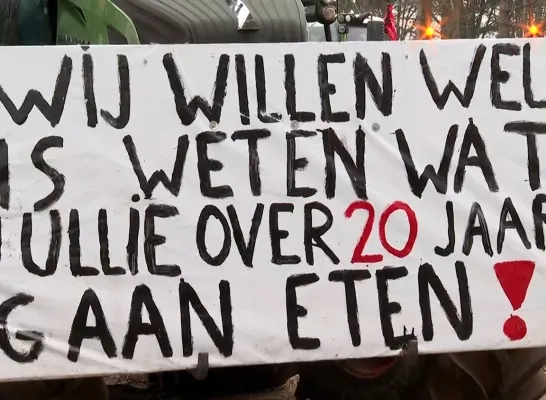 WIJ WILLEN WEL
IS WETEN WAT
JULLIE OVER 20 JAAR
GAAN ETEN!